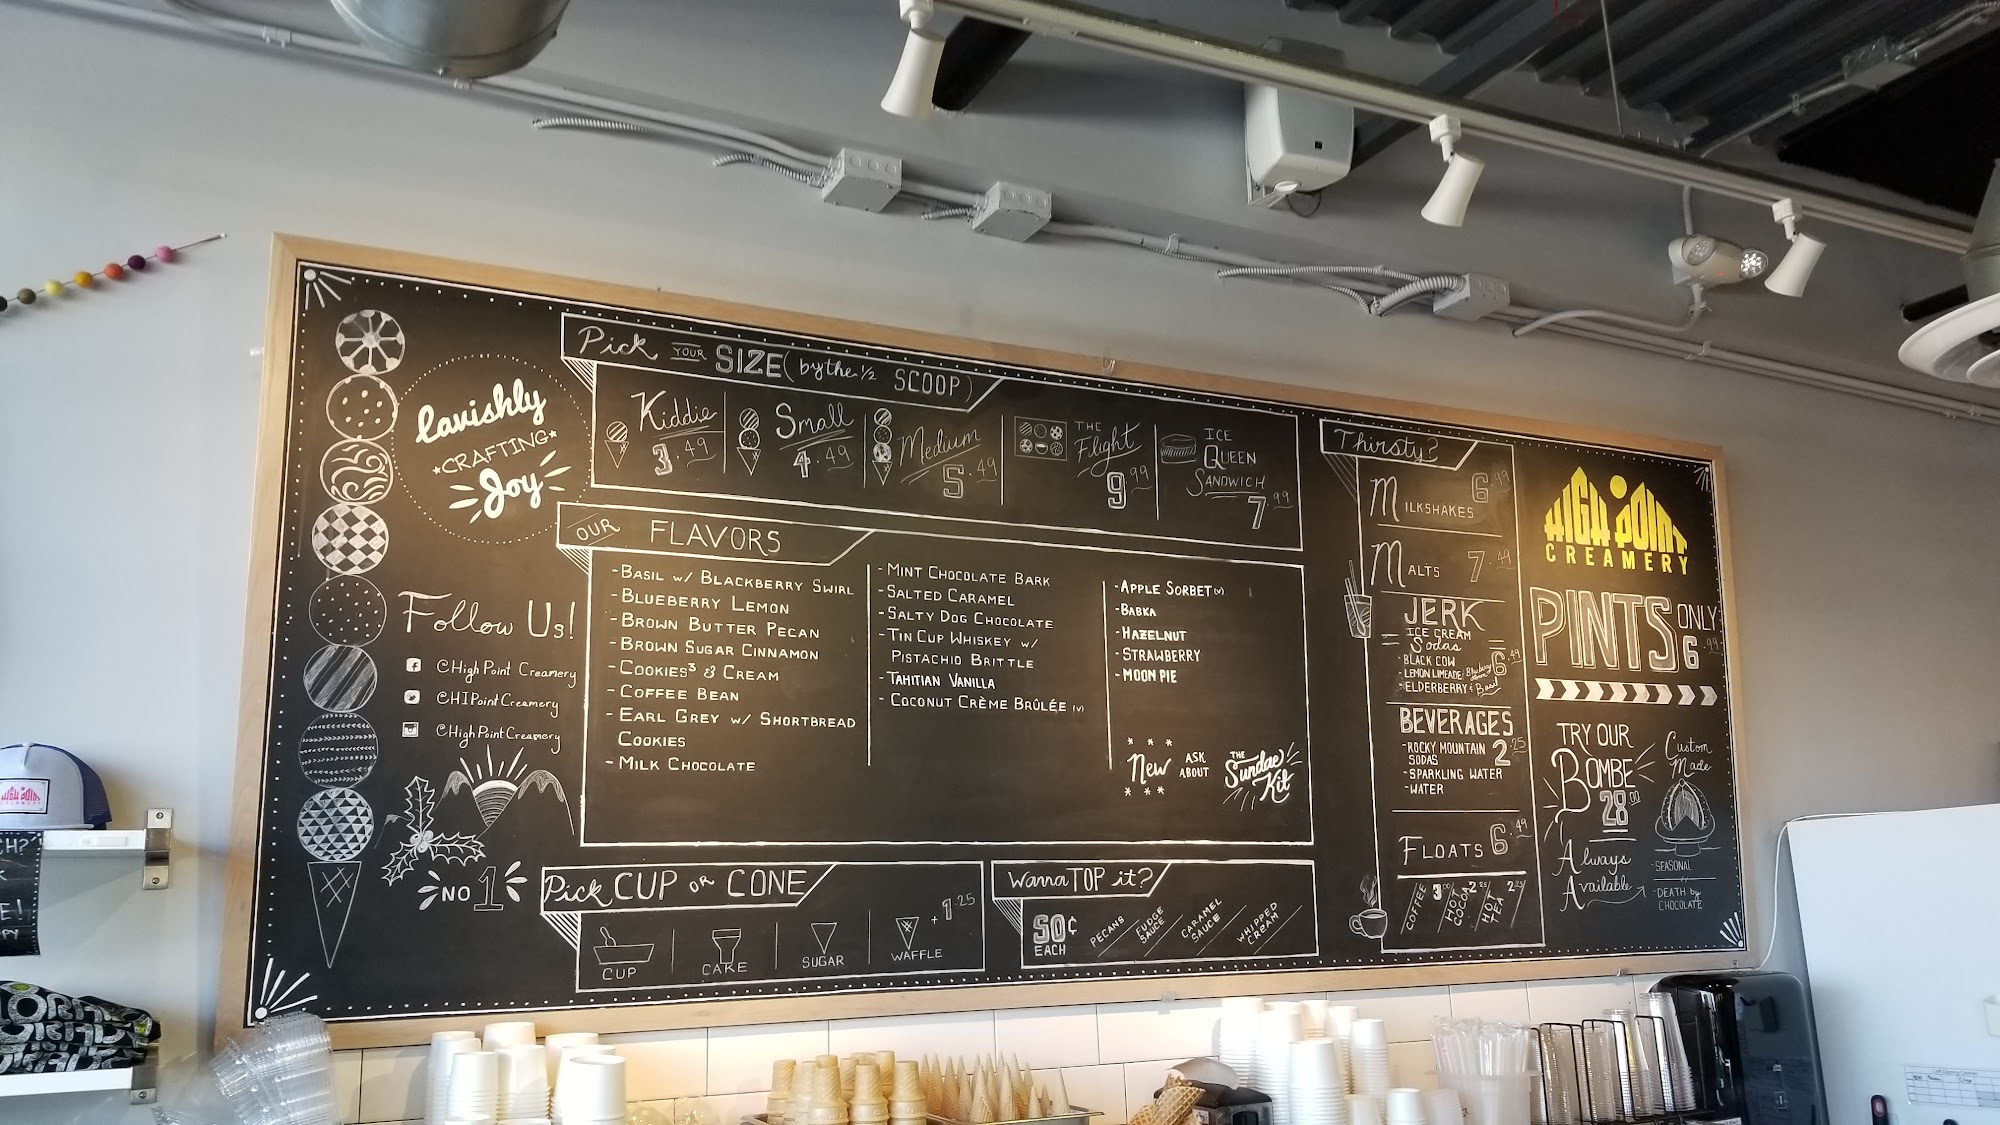 lavishly
CRAFTING
Joy
Follow Us!
@High Point Creamery
@HIPointCreamery
@HighPointCreamery
NO 1
Pick YOUR SIZE (by the 1/2 SCOOP)
Kiddie
3.49
Small
4.49
Medium
5.49
THE
Flight
9.99
ICE
QUEEN
SANDWICH
7.99
OUR FLAVORS
- BASIL W/ BLACKBERRY SWIRL
- BLUEBERRY LEMON
- BROWN BUTTER PECAN
- BROWN SUGAR CINNAMON
- COOKIES³ & CREAM
- COFFEE BEAN
- EARL GREY W/ SHORTBREAD
COOKIES
- MILK CHOCOLATE
- MINT CHOCOLATE BARK
- SALTED CARAMEL
- SALTY DOG CHOCOLATE
- TIN CUP WHISKEY W/
PISTACHIO BRITTLE
- TAHITIAN VANILLA
- COCONUT CRÈME BRÛLÉE (V)
- APPLE SORBET (V)
- BABKA
- HAZELNUT
- STRAWBERRY
- MOON PIE
New ASK
ABOUT
THE
Sundae
Kit
Pick CUP OR CONE
CUP
CAKE
SUGAR
WAFFLE
+ 1.25
Wanna TOP it?
50¢
EACH
PECANS
FUDGE
SAUCE
CARAMEL
SAUCE
WHIPPED
CREAM
Thirsty?
MILKSHAKES 6.99
MALTS 7.49
JERK
ICE CREAM
Sodas
6.49
- BLACK COW
- LEMON LIMEADE
- ELDERBERRY & Basil
BEVERAGES
2.25
- ROCKY MOUNTAIN
SODAS
- SPARKLING WATER
- WATER
FLOATS 6.49
COFFEE 3.00
HOT
COCOA 2.75
HOT
TEA
HIGH POINT
CREAMERY
PINTS ONLY
6.99
TRY OUR
BOMBE
28.00
Always
Available
Custom
Made
- SEASONAL
- DEATH by
CHOCOLATE
HIGH POINT